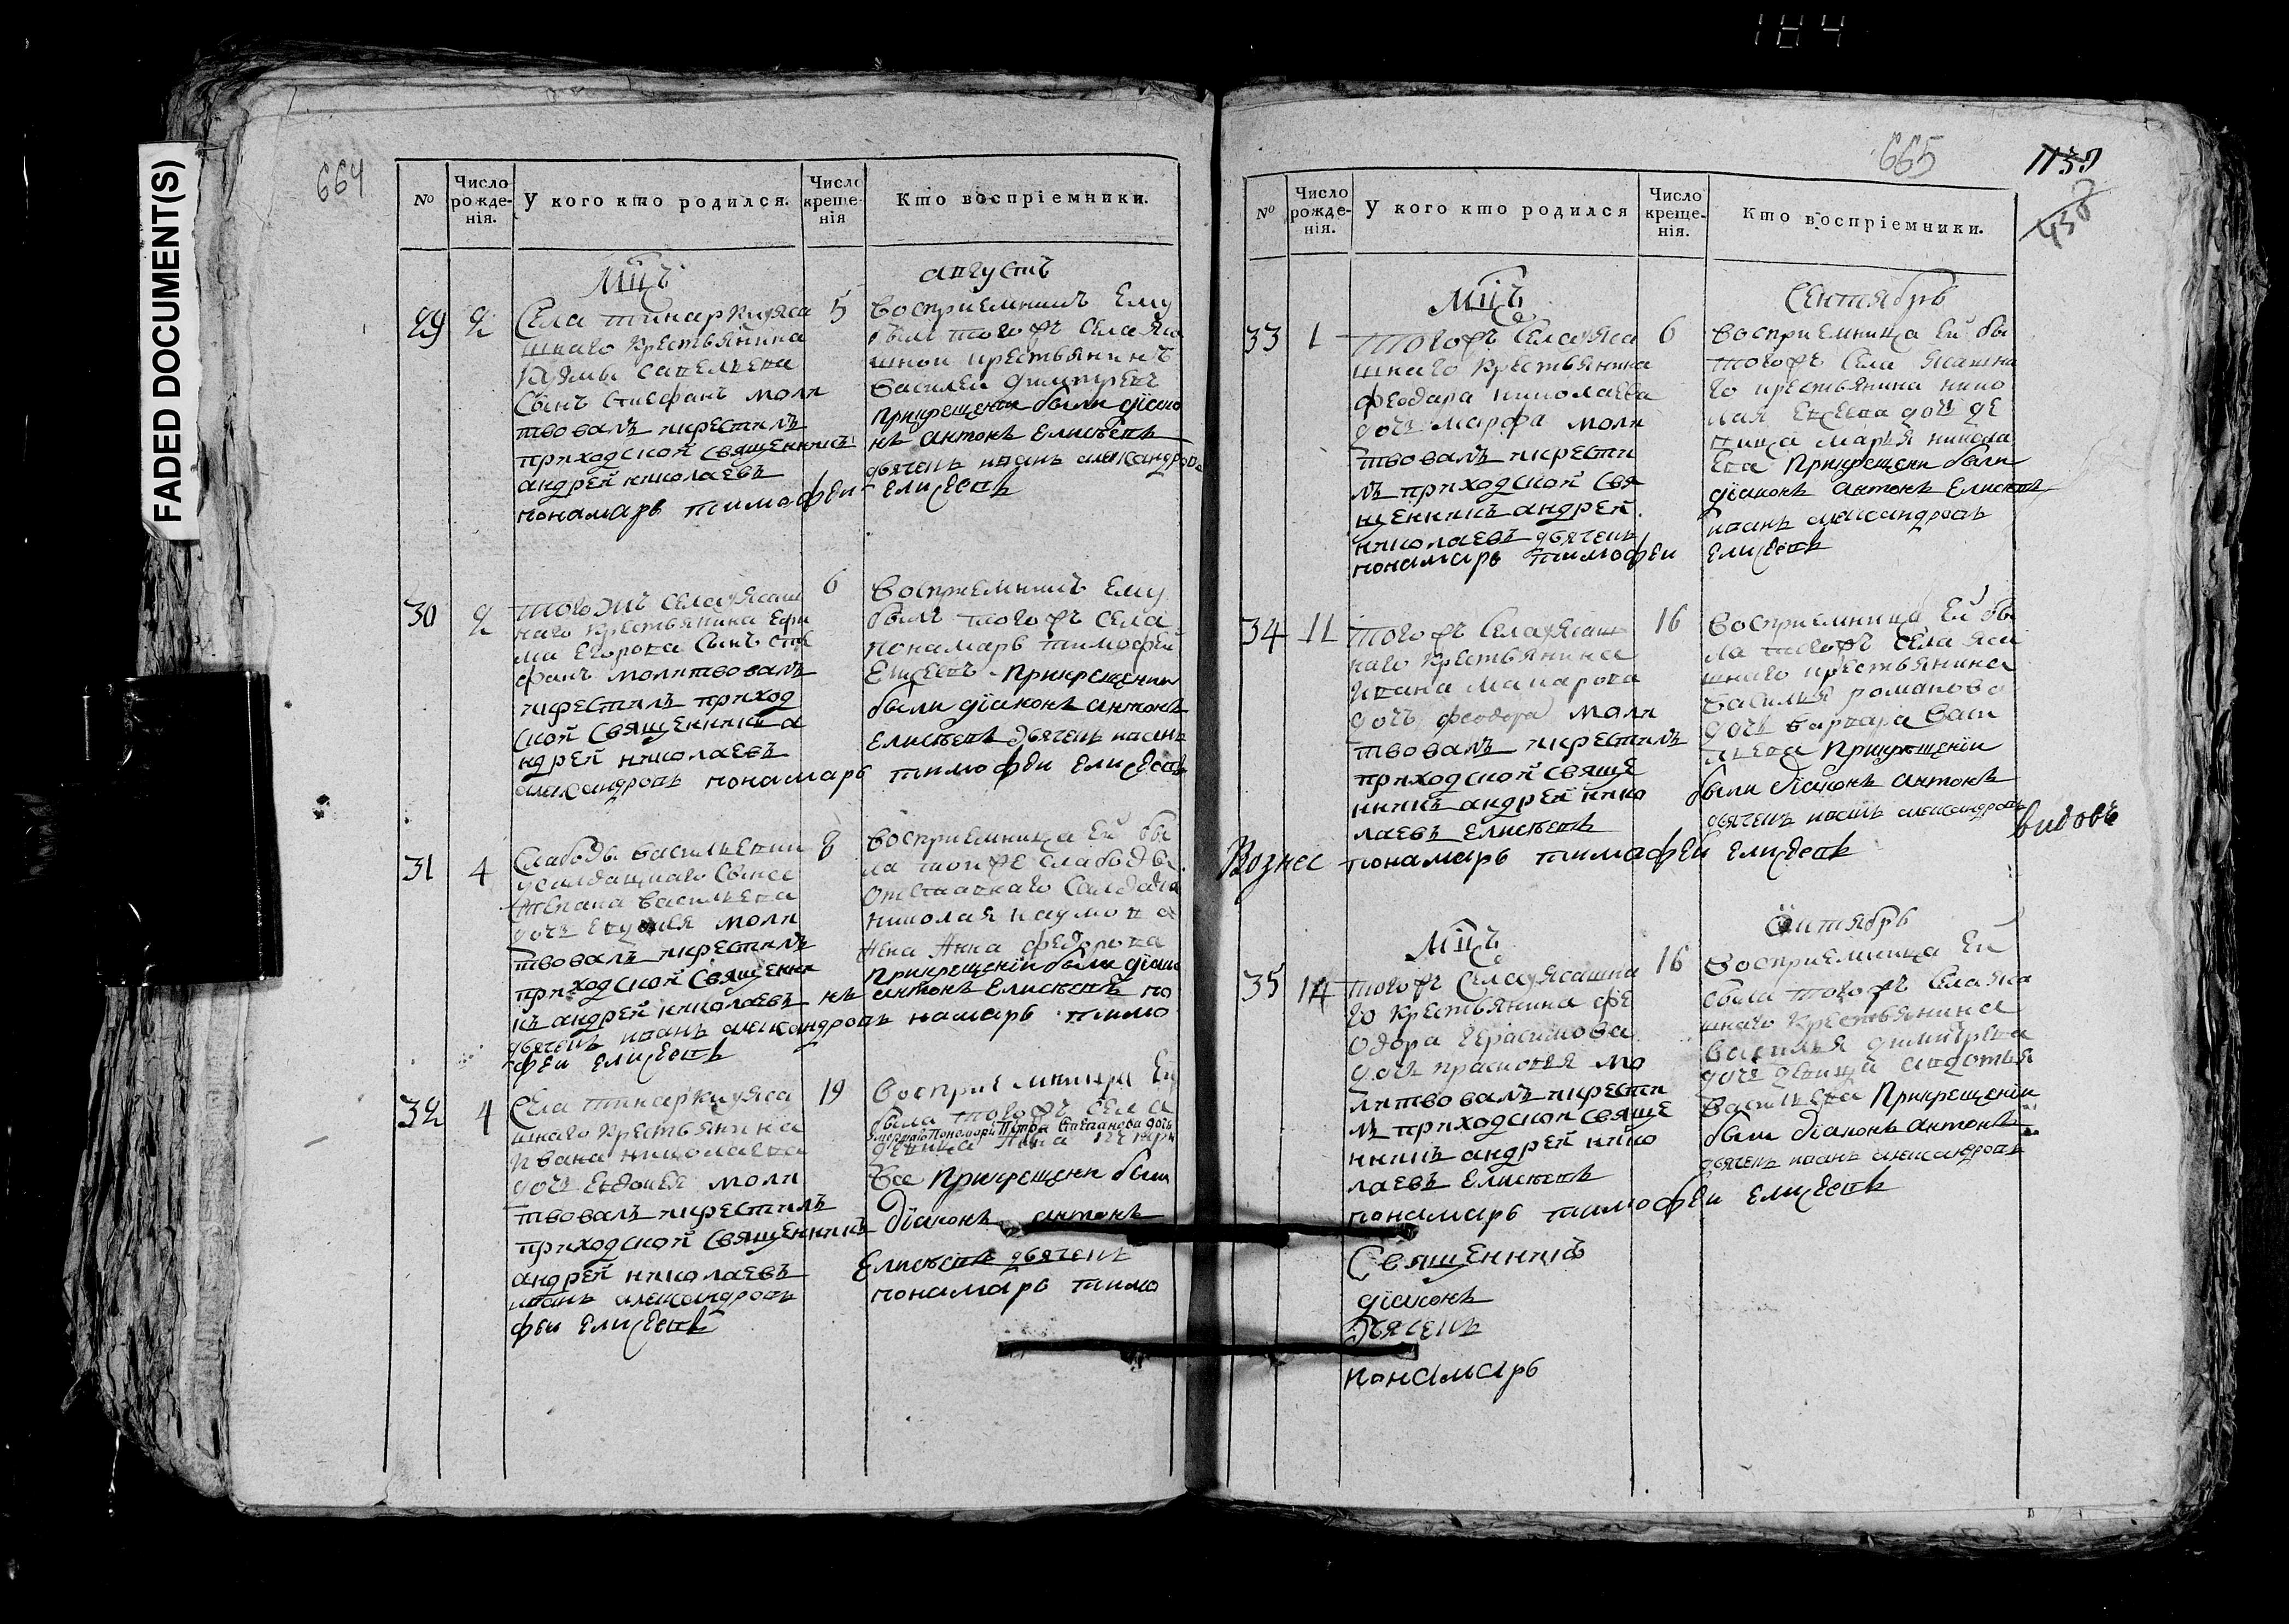 184
FADED DOCUMENT(S)
664
№
Число рожденія.
У кого кто родился.
Число крещенія
Кто воспріемники.
Мцъ
августъ
29 2
Села тинарки яса
шнаго крестьянина
Кузмы савельева
Сынъ Стефанъ моли
твовалъ икрестилъ
приходской священникъ
андрей николаевъ
5
восприемникъ Ему
былъ тогожъ села яса
шной крестьянинъ
василей димитревъ
прикрещени были діако
нъ антонъ Елисеевъ
дьячекъ иванъ александровъ
понамарь тимофей Елисеевъ
30 2
тогожъ села ясаш
наго крестьянина Ефи
ма Егорова сынъ сте
фанъ молитвовалъ
икрестилъ приход
ской священникъ а
ндрей николаевъ
6
восприемникъ Ему
былъ тогожъ села
понамарь тимофей
Елисеевъ прикрещении
были діаконъ антонъ
Елисеевъ дьячекъ иванъ
александровъ понамарь тимофей Елисеевъ
31 4
Слабоды васильевки
усолдацкаго сына
Степана васильева
дочь моли
твовалъ икрестилъ
приходской священни
къ андрей николаевъ
8
восприемница Ей бы
ла тоижъ слабоды
отставнаго солдата
николая наумова
жена Анна федорова
прикрещеніи были діако
нъ антонъ Елисеевъ по
дьячекъ иванъ александровъ намарь тимо
фей Елисеевъ
32 4
Села тинарки яса
шнаго крестьянина
Ивана николаева
дочь Евдокея моли
твовалъ икрестилъ
приходской священникъ
андрей николаевъ
иванъ александровъ
фей Елисеевъ
19
восприемница Ей
была тогожъ села
умершаго Пономаря Петра Степанова дочь
девица Анна петро
ва прикрещени были
діаконъ антонъ
Елисеевъ дьячекъ
понамарь тимо
665
1130
438
№
Число рожденія.
У кого кто родился
Число крещенія.
Кто воспріемники.
Мцъ
Сентябрь
33 1
тогожъ села яса
шнаго крестьянина
феодара николаева
дочь марфа моли
твовалъ икрести
лъ приходской свя
щенникъ андрей
николаевъ дьячекъ
6
восприемница Ей бы
тогожъ села ясашна
го крестьянина нико
лая дочь де
вица марья никола
ева прикрещени были
діаконъ антонъ Елисеевъ
иванъ александровъ
понамарь тимофей Елисеевъ
34 11
тогожъ села ясаш
наго крестьянина
Ивана макарова
дочь феодора моли
твовалъ икрестилъ
приходской свяще
нникъ андрей нико
лаевъ Елисеевъ
16
восприемница Ей бы
ла тогожъ села яса
шнаго крестьянина
василья романова
дочь варвара васи
льева прикрещеніи
были діаконъ антонъ
дьячекъ иванъ александровъ
понамарь тимофей Елисеевъ
Вознес
видовъ
Мцъ
Октябрь
35 14
тогожъ села ясашна
го крестьянина фе
одора герасимова
дочь прасковья мо
литвовалъ икрести
лъ приходской свяще
нникъ андрей нико
лаевъ Елисеевъ
16
восприемница Ей
была тогожъ села яса
шнаго крестьянина
василья димитрева
дочь девица авдотья
васильева прикрещеніи
были діаконъ антонъ
дьячекъ иванъ александровъ
понамарь тимофей Елисеевъ
Священникъ
діаконъ
Дьячекъ
понамарь